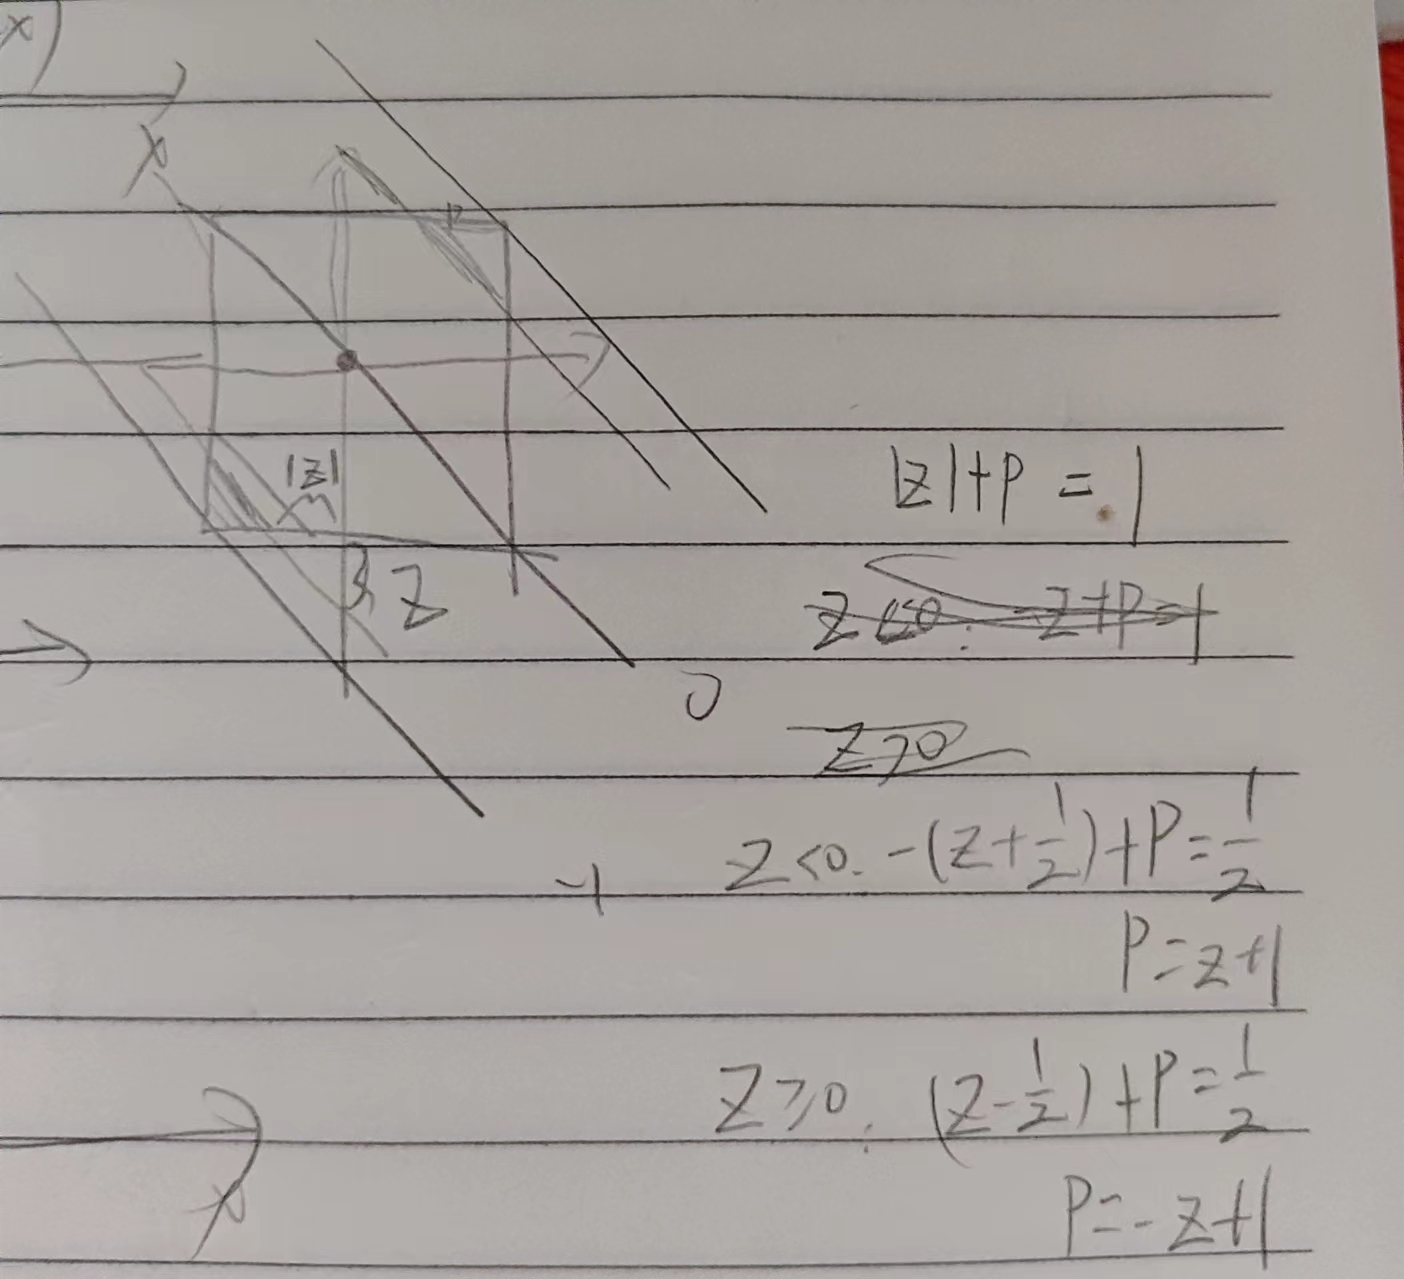 x)
x
P
|z|
z
0
-1
|z|+P=1
z<0: -z+P=1
z>0
z<0. -(z+1/2)+P=1/2
P=z+1
z≥0: (z-1/2)+P=1/2
P=-z+1
x